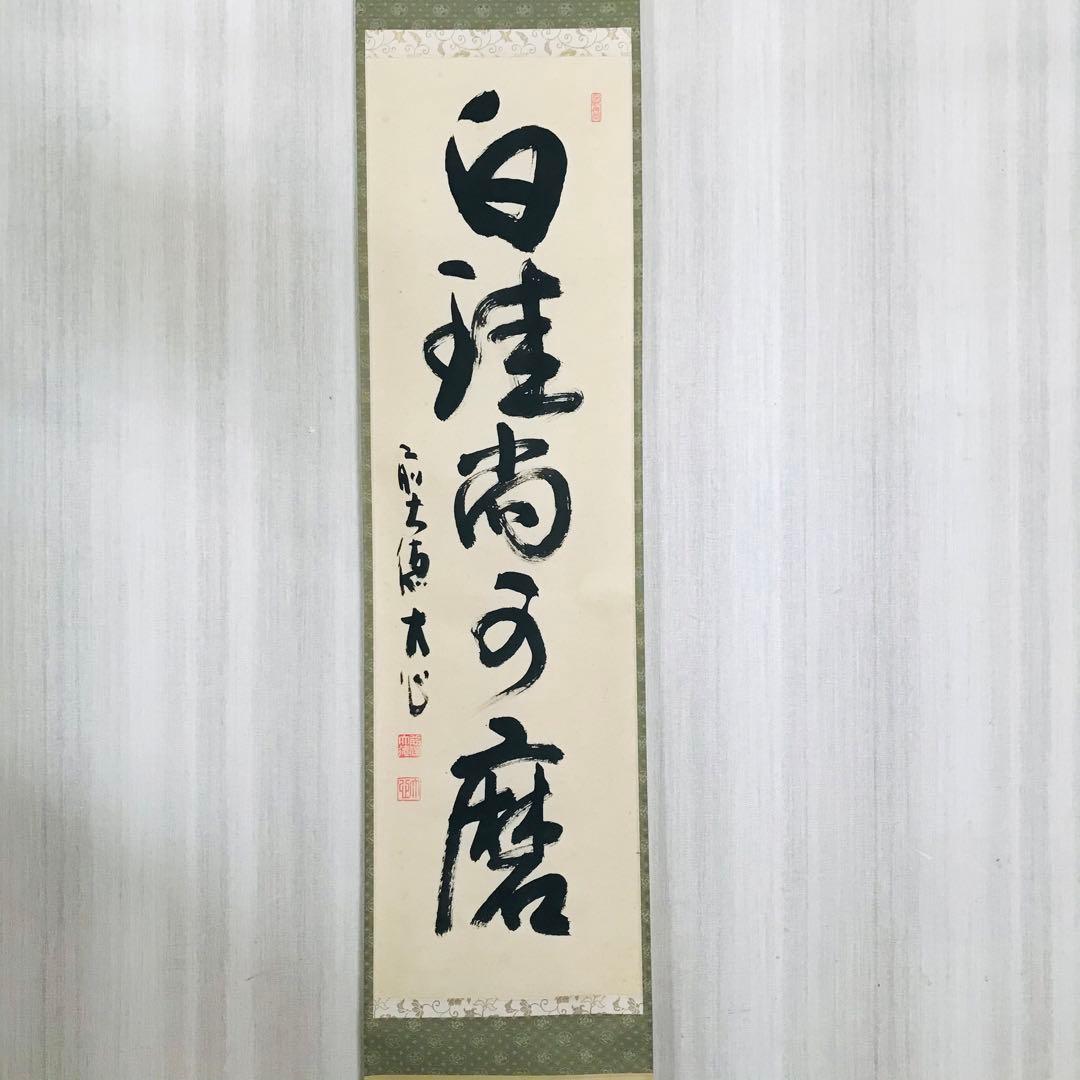 白珪尚可磨
前大徳大心